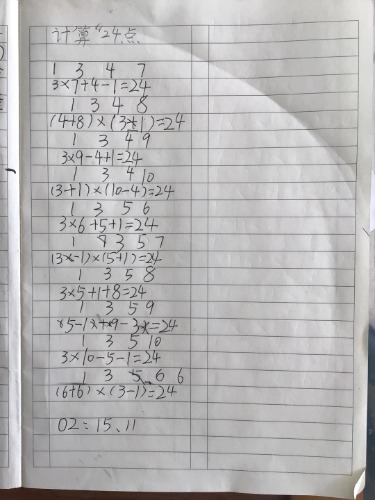 计算"24点
1 3 4 7
3×7+4-1=24
1 3 4 8
(4+8)×(3-1)=24
1 3 4 9
3×9-4+1=24
1 3 4 10
(3+1)×(10-4)=24
1 3 5 6
3×6+5+1=24
1 3 5 7
(3-1)×(5+1)=24
1 3 5 8
3×5+1+8=24
1 3 5 9
1 3 5 10
3×10-5-1=24
1 3 6 6
(6+6)×(3-1)=24
02:15.11